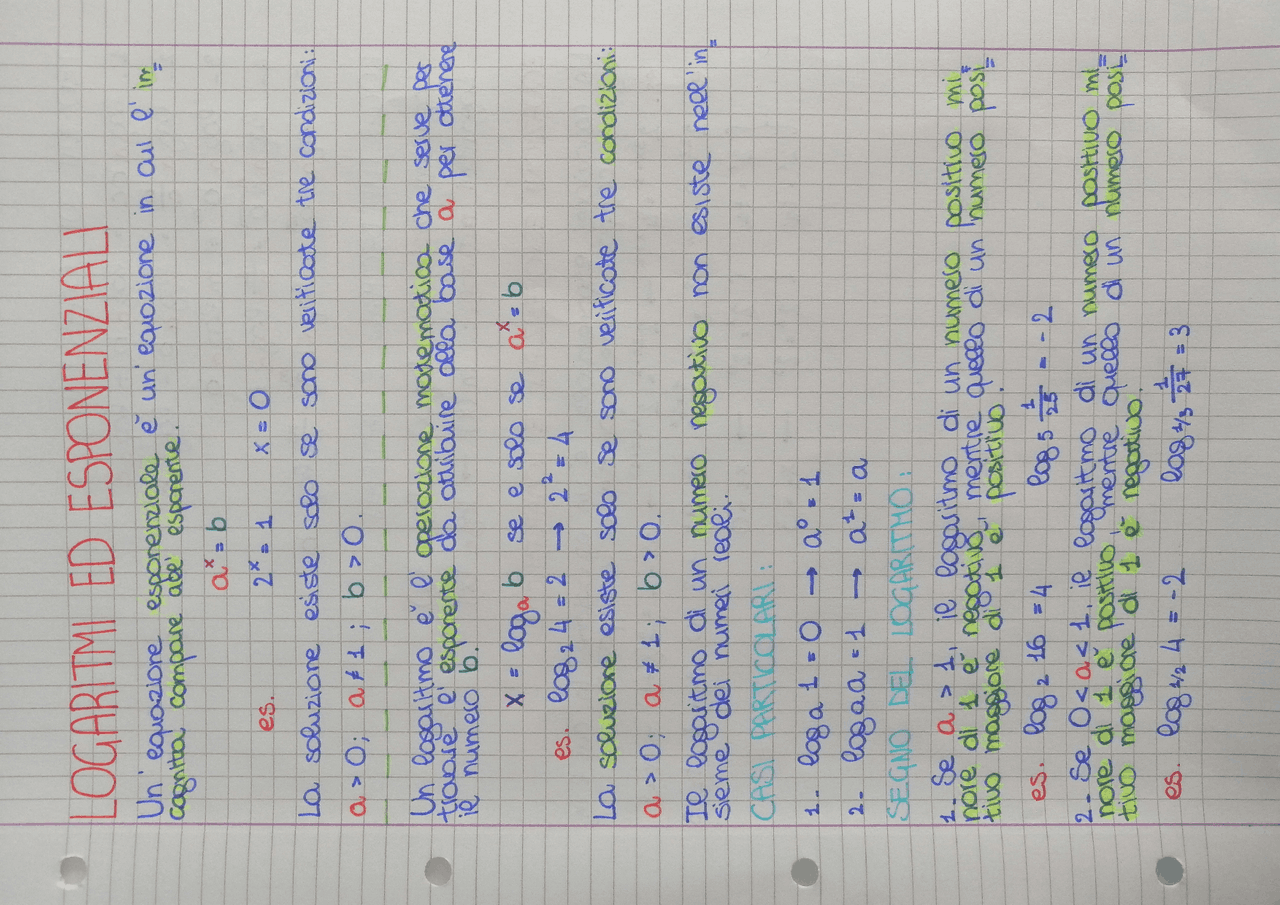 LOGARITMI ED ESPONENZIALI
Un'equazione esponenziale è un'equazione in cui l'im=
cognita compare all'esponente.
aˣ = b
es. 2ˣ = 1 x = 0
La soluzione esiste solo se sono verificate tre condizioni:
a > 0; a ≠ 1; b > 0.
Un logaritmo è l'operazione matematica che serve per
trovare l'esponente da attribuire alla base a per ottenere
il numero b.
x = logₐ b se e solo se aˣ = b
es. log₂ 4 = 2 → 2² = 4
La soluzione esiste solo se sono verificate tre condizioni:
a > 0; a ≠ 1; b > 0.
Il logaritmo di un numero negativo non esiste nell'in=
sieme dei numeri reali.
CASI PARTICOLARI:
1.. log a 1 = 0 → a⁰ = 1
2- log a a = 1 → a¹ = a
SEGNO DEL LOGARITMO:
1- Se a > 1, il logaritmo di un numero positivo mi=
nore di 1 è negativo, mentre quello di un numero posi=
tivo maggiore di 1 è positivo.
es. log₂ 16 = 4 log 5 1/25 = -2
2- Se 0 < a < 1, il logaritmo di un numero positivo mi=
nore di 1 è positivo, mentre quello di un numero posi=
tivo maggiore di 1 è negativo.
es. log 1/2 4 = -2 log 1/3 1/27 = 3